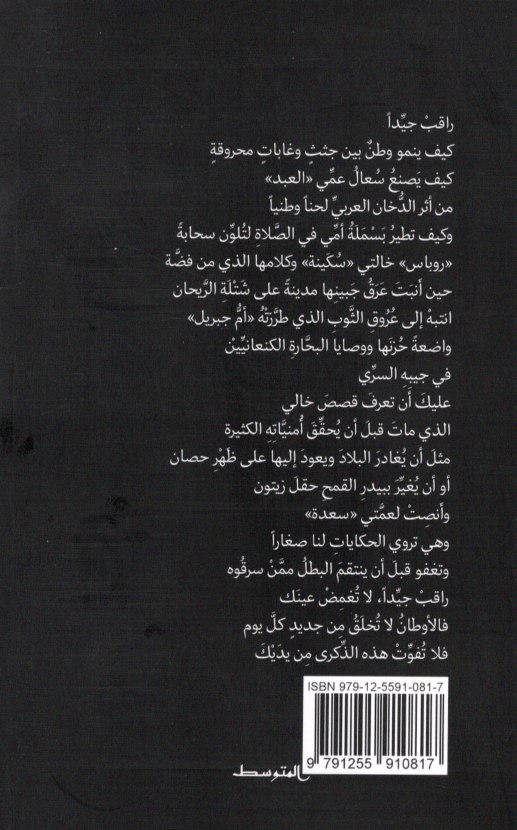 راقبْ جيِّداً
كيف ينمو وطنٌ بين جثثٍ وغاباتٍ محروقةٍ
كيف يَصنعُ سُعالُ عمِّي «العبد»
من أثر الدُّخان العربيِّ لحناً وطنياً
وكيف تطيرُ بَسْمَلَةُ أمِّي في الصَّلاةِ لتُلوِّن سحابةً
«روباس» خالتي «سُكَينة» وكلامها الذي من فضَّة
حين أنبَتَ عَرَقُ جَبينِها مدينةً على شَتْلَة الرَّيحان
انتبهْ إلى عُرُوقِ الثَّوبِ الذي طرَّزتهُ «أمُّ جبريل»
واضعةً حُزنَها ووصايا البحَّارةِ الكنعانيِّيْن
في جيبِهِ السرِّي
عليكَ أن تعرفَ قصصَ خالي
الذي ماتَ قبلَ أن يُحقِّقَ أُمنيَّاتِهِ الكثيرة
مثلَ أن يُغادرَ البلادَ ويعودَ إليها على ظَهْرِ حصان
أو أن يُغيِّرَ ببيدرِ القمحِ حقلَ زيتون
وأنصِتْ لعمَّتي «سعدة»
وهي تروي الحكاياتِ لنا صغاراً
وتغفو قبلَ أن ينتقمَ البطلُ ممَّنْ سرقُوه
راقبْ جيِّداً، لا تُغمِضْ عينَك
فالأوطانُ لا تُخلَقُ مِن جديدٍ كلَّ يوم
فلا تُفوِّتْ هذه الذِّكرى مِن يدَيْكَ
ISBN 979-12-5591-081-7
9 791255 910817
المتوسط